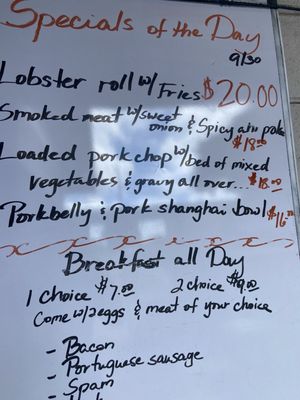 Specials of the Day
9/30
Lobster roll w/ Fries $20.00
Smoked meat w/ sweet
onion & Spicy ahi poke
$18.00
Loaded porkchop w/ bed of mixed
vegetables & gravy all over... $18.00
Porkbelly & pork shanghai bowl $16.00
Breakfast all Day
1 choice $7.00 2 choice $9.00
Come w/ 2 eggs & meat of your choice
- Bacon
- Portuguese sausage
- Spam